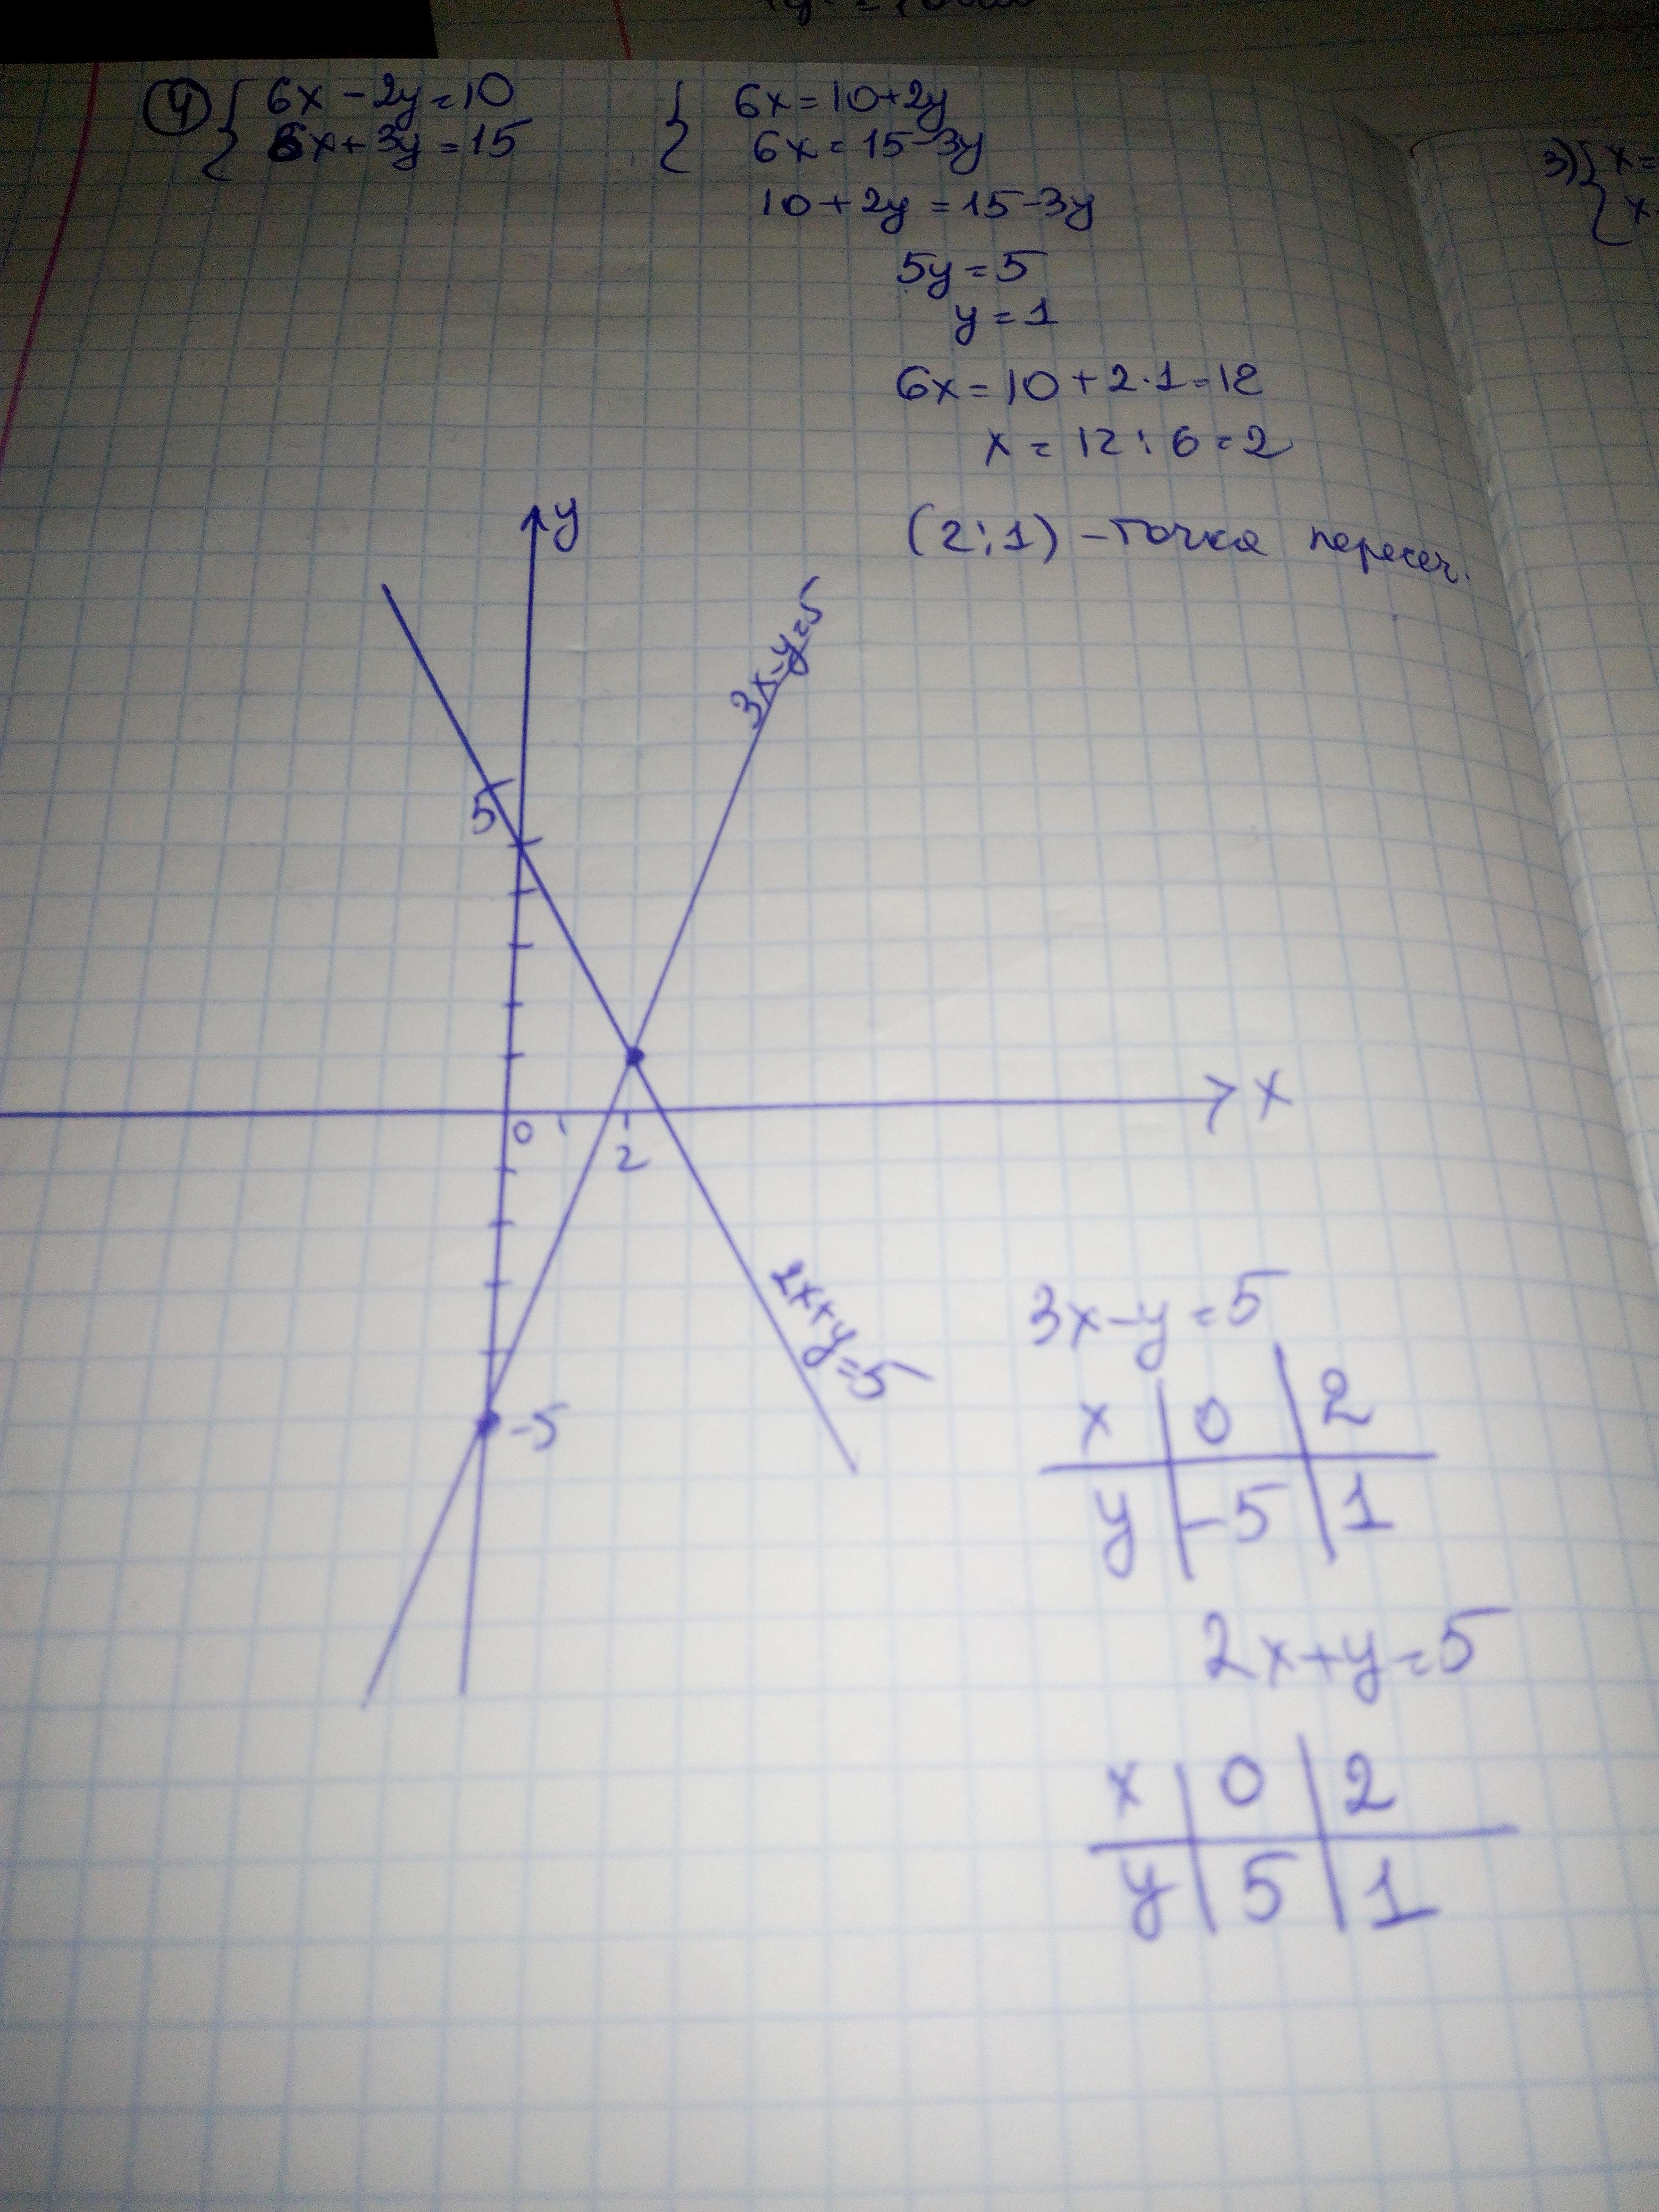 4 { 6x - 2y = 10
6x + 3y = 15
{ 6x = 10 + 2y
6x = 15 - 3y
10 + 2y = 15 - 3y
5y = 5
y = 1
6x = 10 + 2·1 = 12
x = 12 : 6 = 2
(2;1) - точка пересеч.
3) { x =
x
y
3x-y=5
5
x
0
2
2x+y=5
-5
3x-y=5
x | 0 | 2
y | -5 | 1
2x+y=5
x | 0 | 2
y | 5 | 1